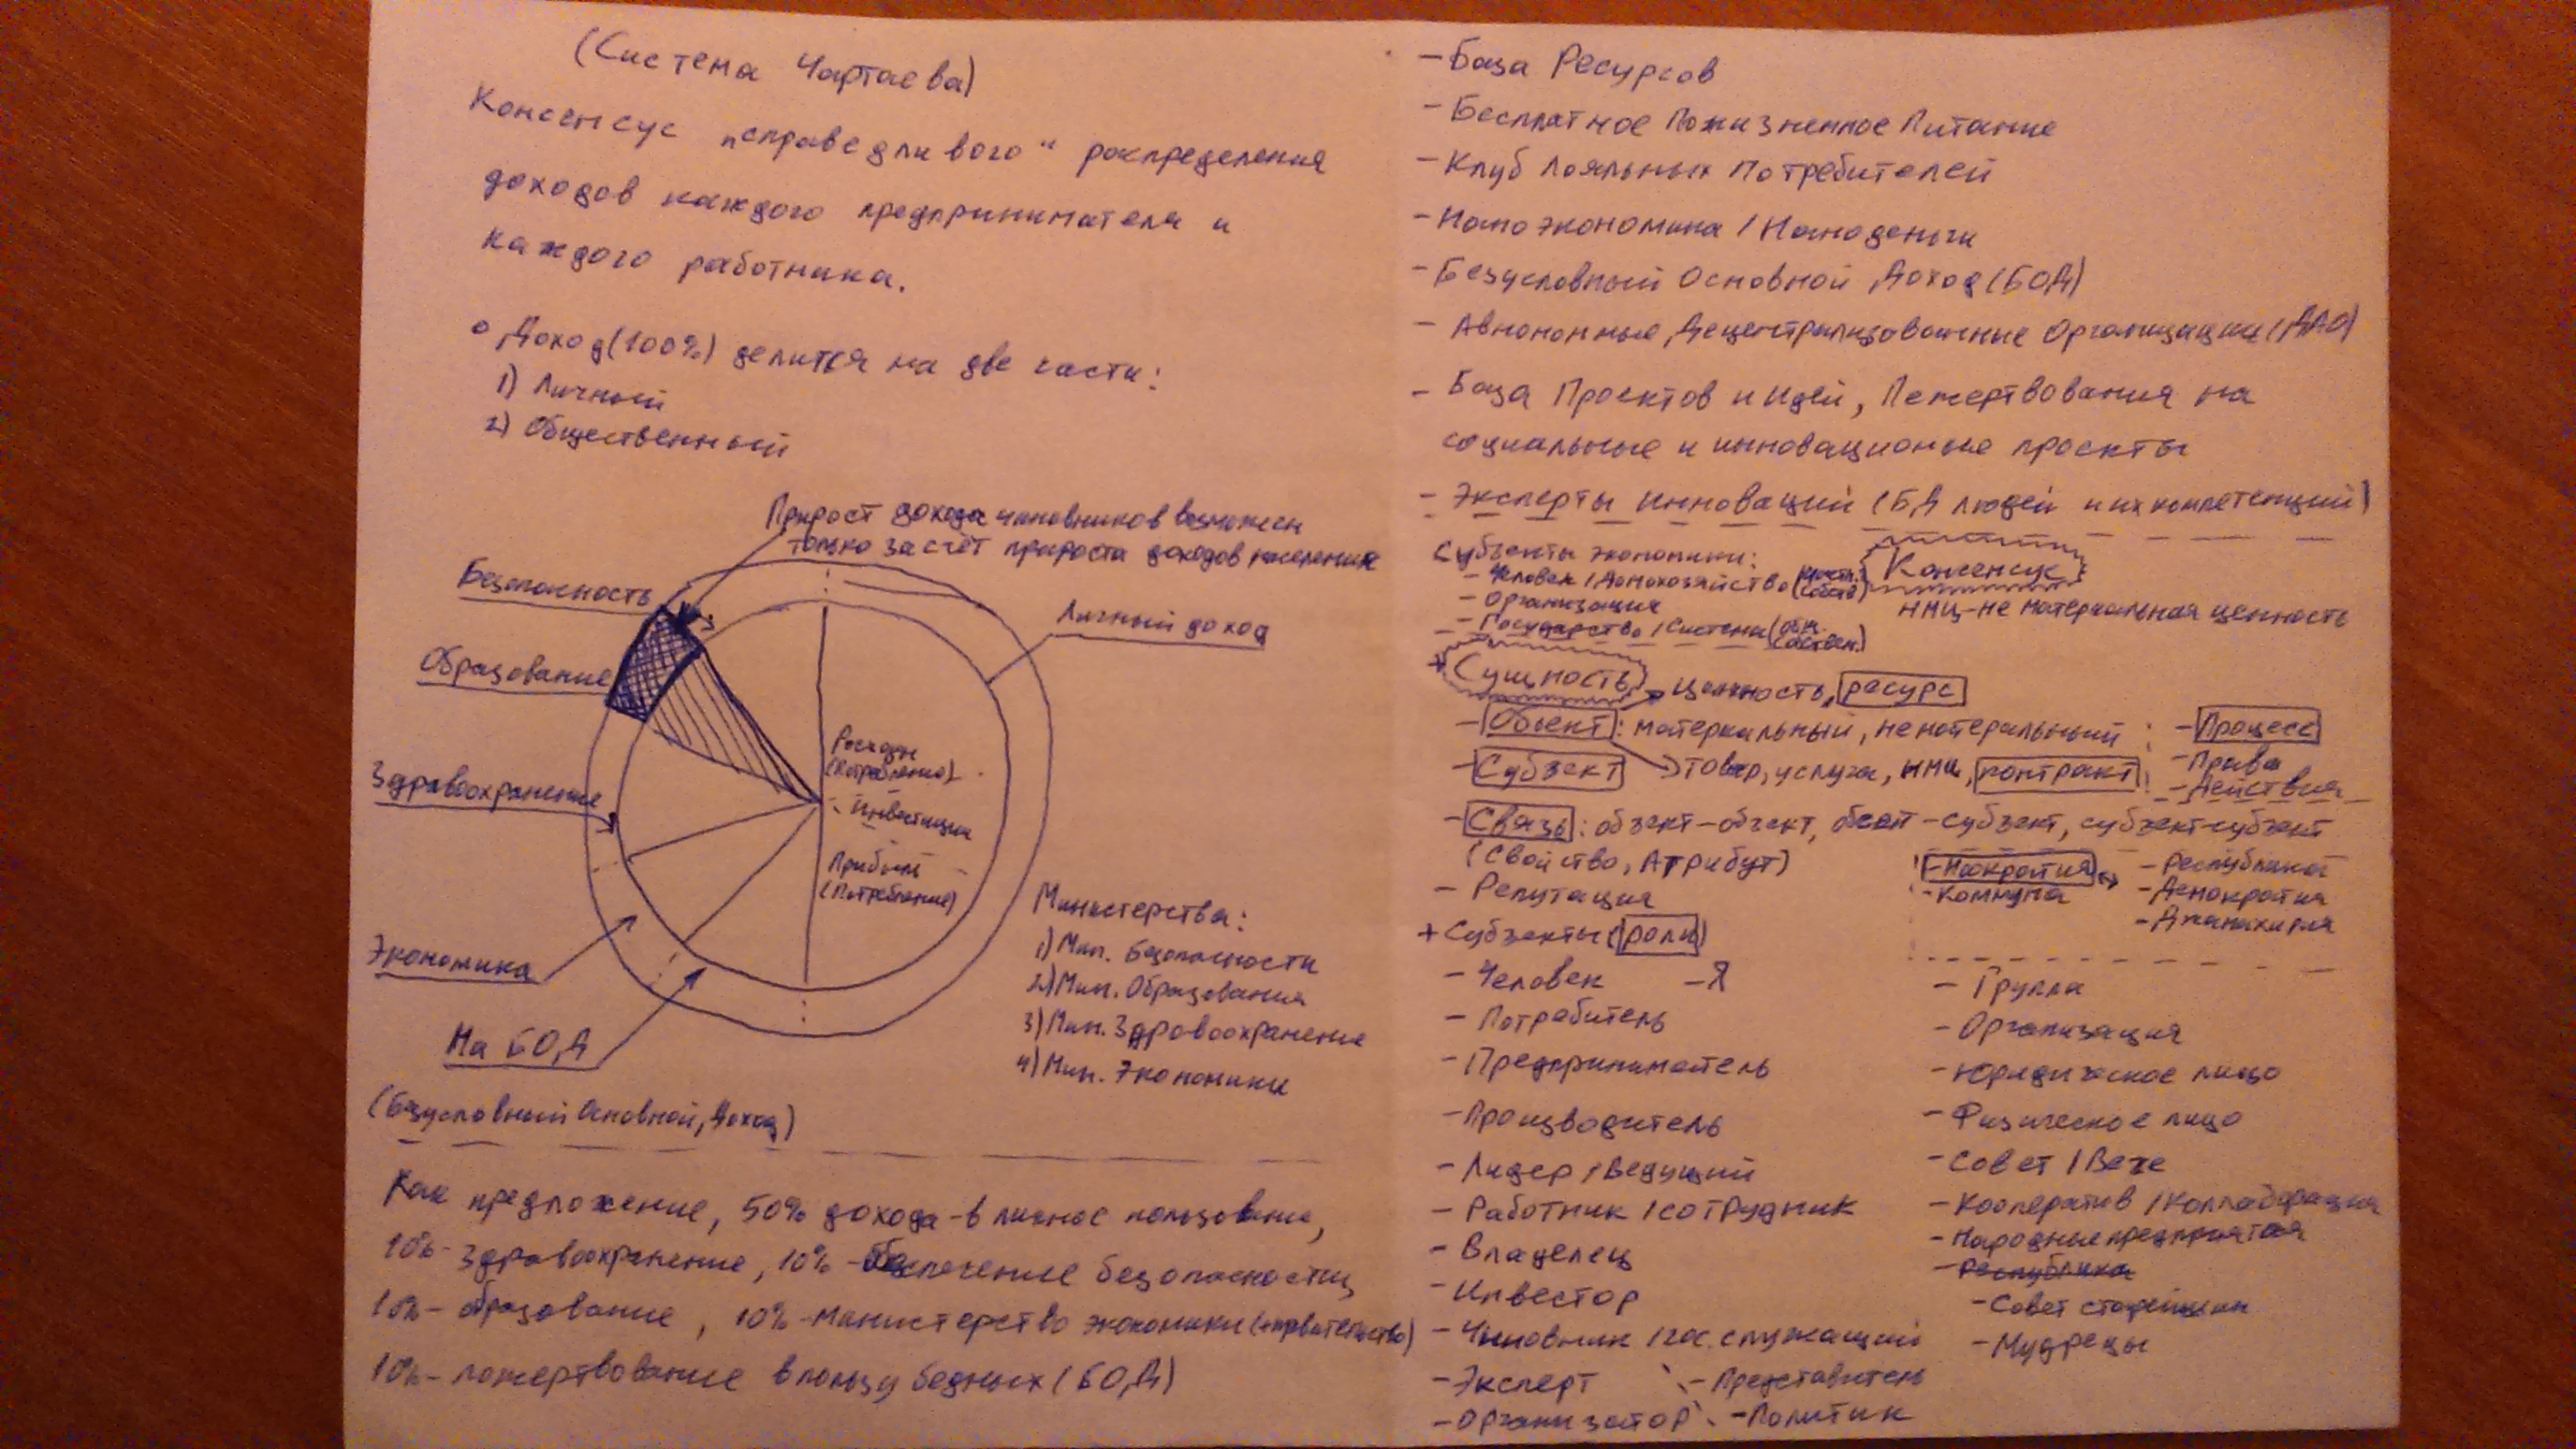 (Система Чартаева)
Консенсус "справедливого" распределения
доходов каждого предпринимателя и
каждого работника.
о Доход (100%) делится на две части:
1) Личный
2) Общественный
Прирост дохода чиновников возможен
только за счёт прироста доходов населения
Безопасность
Образование
Здравоохранение
Экономика
На БОД
(Безусловный Основной Доход)
Личный доход
Расходы
(Потребление)
- Инвестиции
Прибыль
(Потребление)
Министерства:
1) Мин. Безопасности
2) Мин. Образования
3) Мин. Здравоохранение
4) Мин. Экономики
Как предложение, 50% дохода - в личное пользование,
10% - здравоохранение, 10% - обеспечение безопасности,
10% - образование, 10% - министерство экономики (+правительство)
10% - пожертвование в пользу бедных (БОД)
- База Ресурсов
- Бесплатное Пожизненное Питание
- Клуб Лояльных Потребителей
- Наноэкономика / Наноденьги
- Безусловный Основной Доход (БОД)
- Автономные Децентрализованные Организации (ДАО)
- База Проектов и Идей, Пожертвования на
социальные и инновационые проекты
- Эксперты инноваций (БД людей и их компетенций)
Субъекты экономики:
- Человек / Домохозяйство
- Организация
- Государство / Система
Консенсус
НМЦ - не материальная ценность
+ Сущность
ценность, ресурс
- Объект: материальный, нематериальный
- Субъект
товар, услуга, НМЦ, контракт
- Процесс
- Права
- Действия
- Связь: объект-объект, объект-субъект, субъект-субъект
(Свойство, Атрибут)
- Репутация
- Коммуна
- Республика
- Демократия
- Джамахирия
+ Субъекты (роли)
- Человек - Я
- Потребитель
- Предприниматель
- Производитель
- Лидер / Ведущий
- Работник / сотрудник
- Владелец
- Инвестор
- Чиновник / гос. служащий
- Эксперт
- Организатор
- Представитель
- Политик
- Группа
- Организация
- Юридическое лицо
- Физическое лицо
- Совет / Вече
- Кооператив / Коллаборация
- Народные предприятия
- Республика
- Совет старейшин
- Мудрецы